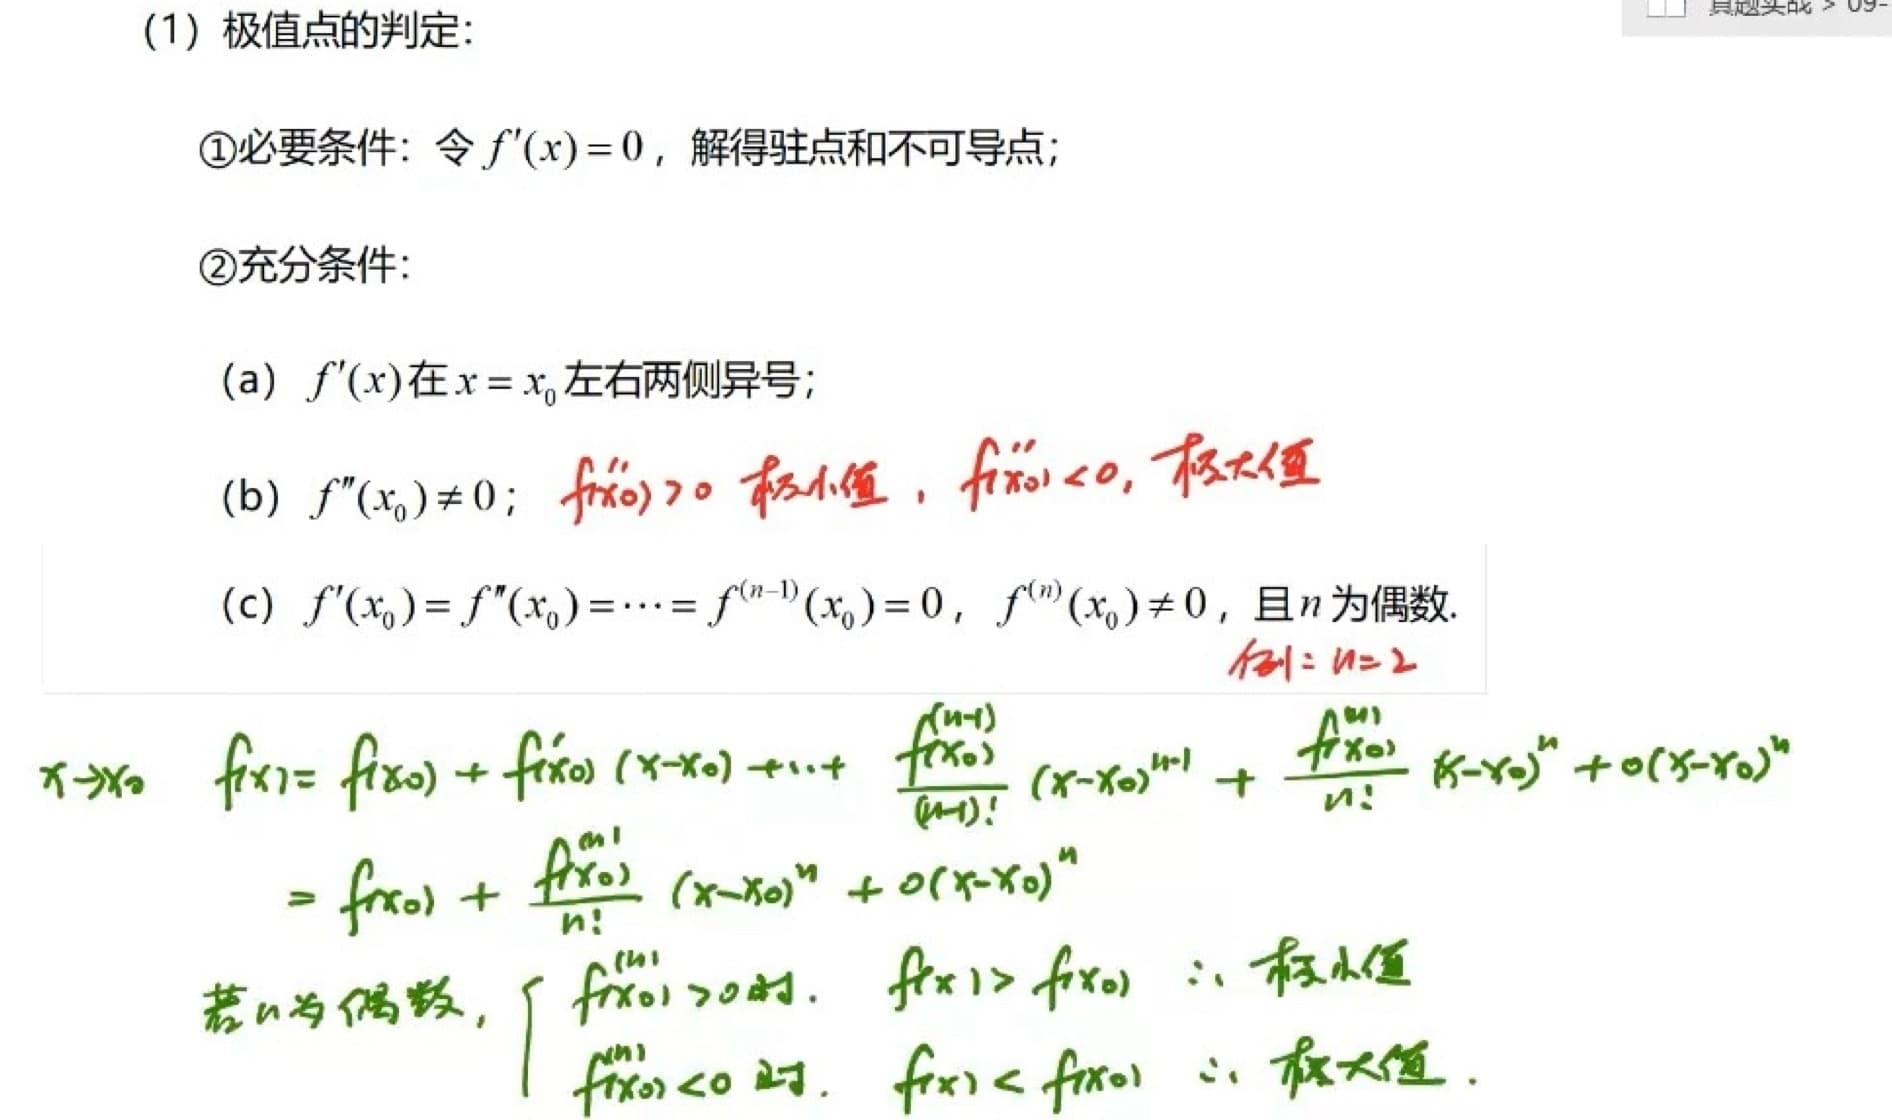 真题实战 > 09-
(1) 极值点的判定:
①必要条件: 令 f′(x)=0, 解得驻点和不可导点;
②充分条件:
(a) f′(x)在 x=x₀左右两侧异号;
(b) f″(x₀)≠0; f″(x₀)>0 极小值, f″(x₀)<0, 极大值
(c) f′(x₀)=f″(x₀)=⋯=f⁽ⁿ⁻¹⁾(x₀)=0, f⁽ⁿ⁾(x₀)≠0, 且 n 为偶数.
例: n=2
x→x₀ f(x)= f(x₀) + f′(x₀) (x-x₀) +⋯+ f⁽ⁿ⁻¹⁾(x₀)/(n-1)! (x-x₀)ⁿ⁻¹ + f⁽ⁿ⁾(x₀)/n! (x-x₀)ⁿ + o(x-x₀)ⁿ
= f(x₀) + f⁽ⁿ⁾(x₀)/n! (x-x₀)ⁿ + o(x-x₀)ⁿ
若n为偶数, { f⁽ⁿ⁾(x₀)>0时. f(x)> f(x₀) ∴ 极小值
f⁽ⁿ⁾(x₀)<0 时. f(x)< f(x₀) ∴ 极大值.